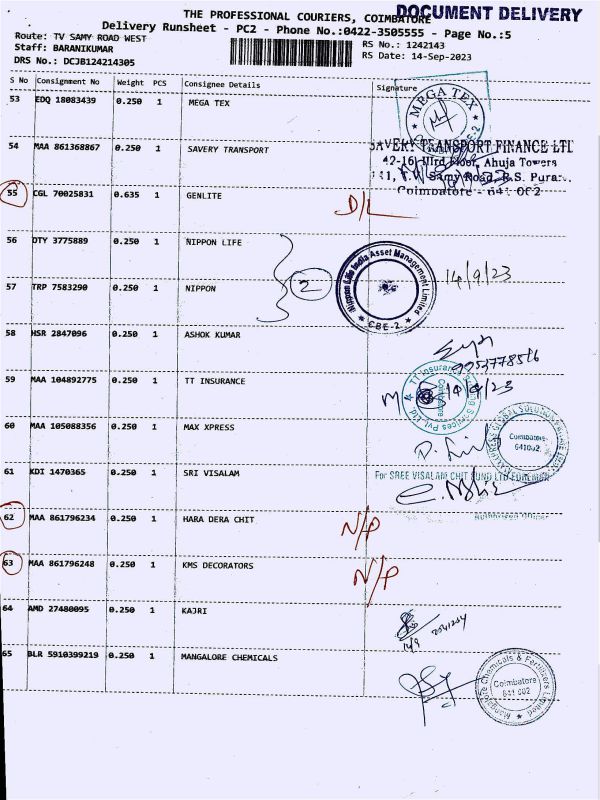 THE PROFESSIONAL COURIERS, COIMBATORE
DOCUMENT DELIVERY
Delivery Runsheet - PC2 - Phone No.:0422-3505555 - Page No.:5
Route: TV SAMY ROAD WEST
RS No.: 1242143
Staff: BARANIKUMAR
RS Date: 14-Sep-2023
DRS No.: DCJB124214305
S No Consignment No Weight PCS Consignee Details Signature
53 EDQ 18083439 0.250 1 MEGA TEX
MEGA TEX
54 MAA 861368867 0.250 1 SAVERY TRANSPORT
SAVERY TRANSPORT FINANCE LTD
42-16 IIIrd Floor, Ahuja Towers
Samy Road, R.S. Pura
Coimbatore - 641 002
55 CGL 70025831 0.635 1 GENLITE
D/L
56 DTY 3775889 0.250 1 NIPPON LIFE
57 TRP 7583290 0.250 1 NIPPON
2
Nippon Life India Asset Management Limited
CBE-2
14/9/23
58 HSR 2847096 0.250 1 ASHOK KUMAR
59 MAA 104892775 0.250 1 TT INSURANCE
TT Insurance Broking Services Pvt. Ltd.
Coimbatore
14/9/23
60 MAA 105088356 0.250 1 MAX XPRESS
Coimbatore
641002
61 KDI 1470365 0.250 1 SRI VISALAM
For SREE VISALAM CHIT FUND LTD
Authorised Officer
62 MAA 861796234 0.250 1 HARA DERA CHIT
N/P
63 MAA 861796248 0.250 1 KMS DECORATORS
N/P
64 AMD 27480095 0.250 1 KAJRI
14/9
65 BLR 5910399219 0.250 1 MANGALORE CHEMICALS
Mangalore Chemicals & Fertilizers Limited
Coimbatore
641 002